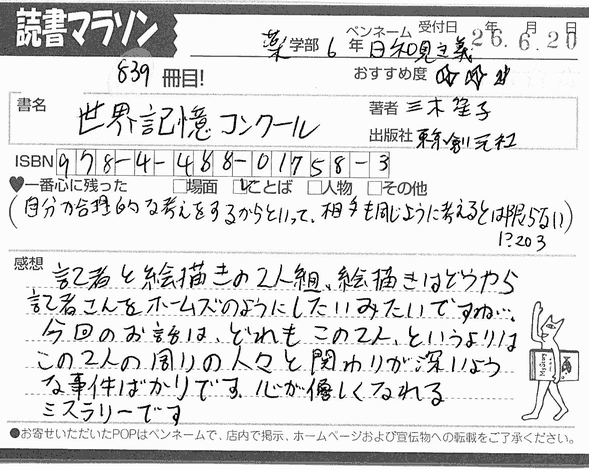 読書マラソン
薬学部 6年 ペンネーム 日和見主義 受付日 26年 6月 20日
839 冊目!
おすすめ度 ☆☆☆
書名 世界記憶コンクール
著者 三木笙子
出版社 東京創元社
ISBN 978-4-488-01758-3
♥一番心に残った □場面 ☑ことば □人物 □その他
(自分が合理的な考えをするからといって、相手も同じように考えるとは限らない)
P.203
感想
記者と絵描きの2人組、絵描きはどうやら
記者さんをホームズのようにしたいみたいですね…。
今回のお話は、どれもこの2人、というよりは
この2人の周りの人々と関わりが深いよう
な事件ばかりです。心が優しくなれる
ミステリーです
Mystery
●お寄せいただいたPOPはペンネームで、店内で掲示、ホームページおよび宣伝物への転載をご了承ください。